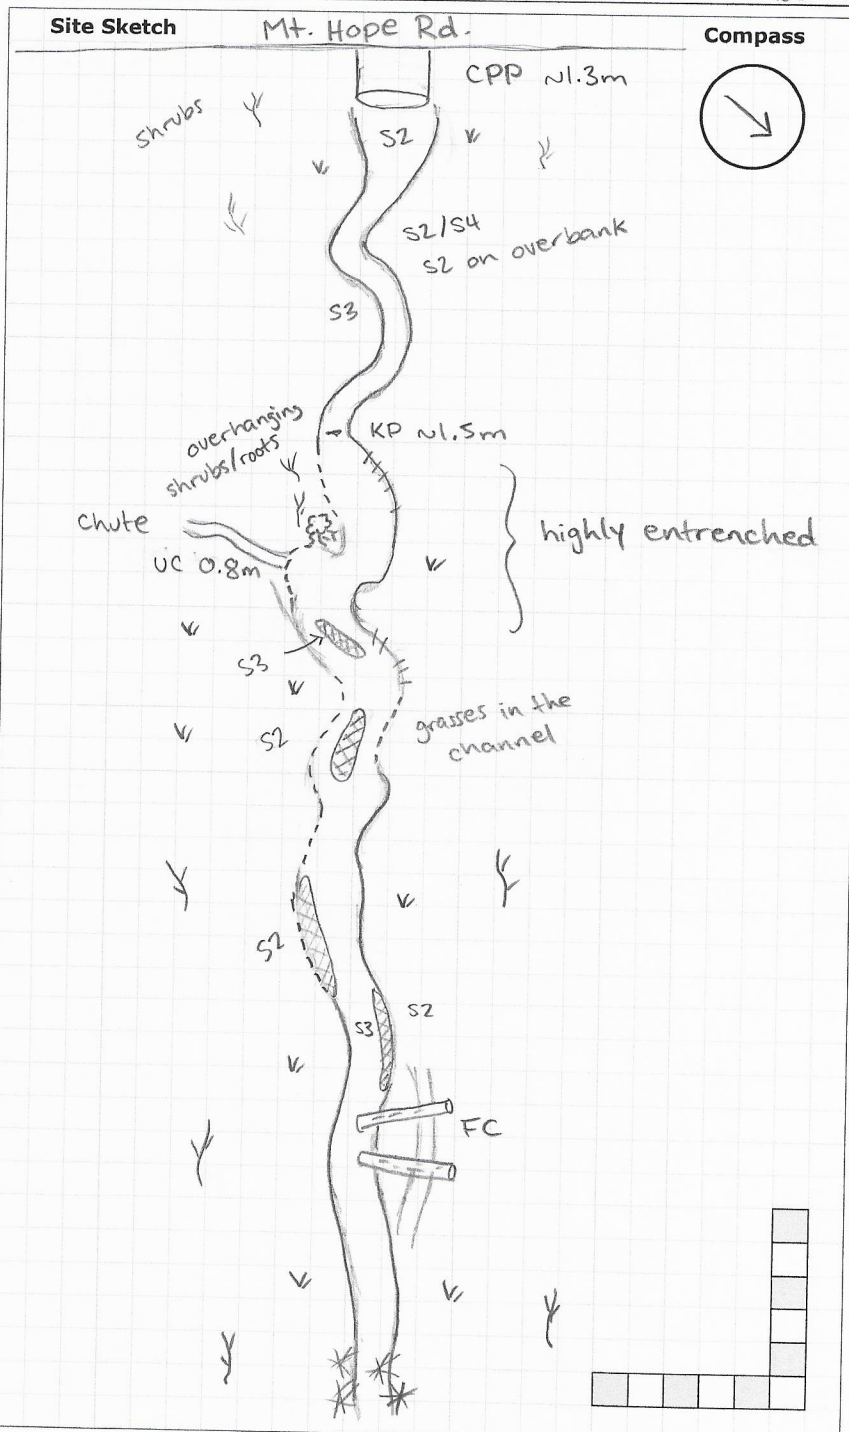 Site Sketch
Mt. Hope Rd.
Compass
CPP ~1.3m
shrubs
S2
S2/S4
S2 on overbank
S3
overhanging
shrubs/roots
KP ~1.5m
chute
UC 0.8m
highly entrenched
S3
S2
grasses in the
channel
S2
S2
S3
FC